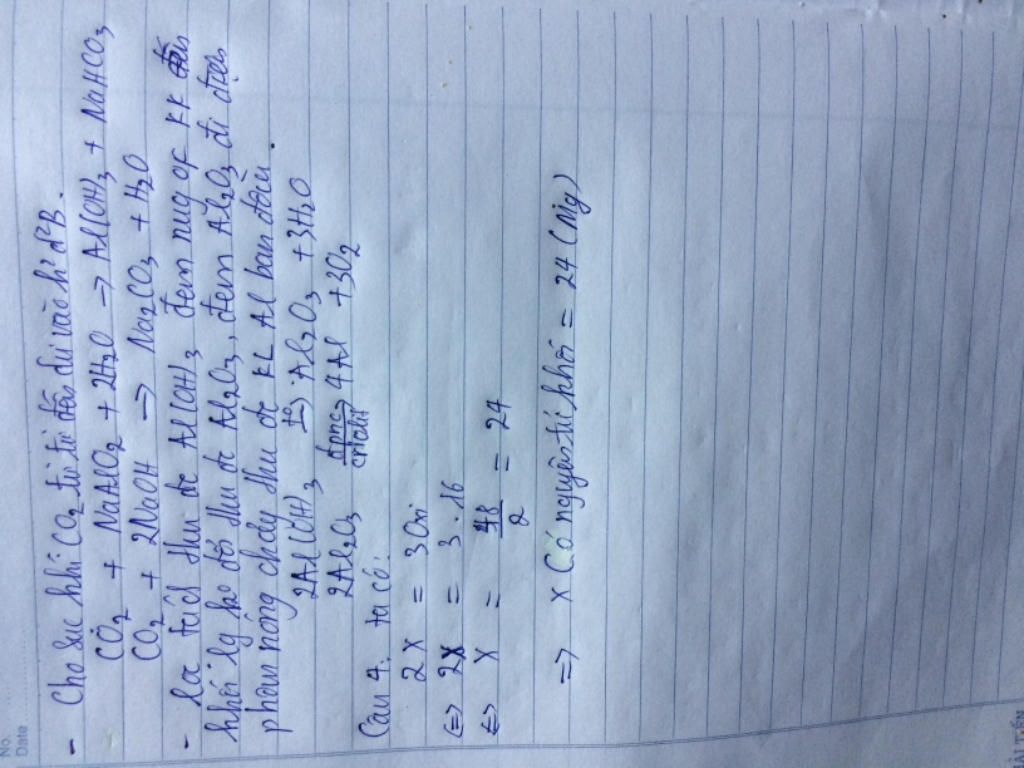 No.
Date
- Cho sục khí CO2 từ từ đến dư vào hỉ d²B.
CO2 + NaAlO2 + 2H2O → Al(OH)3 + NaHCO3
CO2 + 2NaOH → Na2CO3 + H2O
- lọc tách thu đc Al(OH)3 đem nug of KK đến
khối lg ko đổi thu đc Al2O3, đem Al2O3 đi điện
phân nóng chảy thu đc KL Al ban đầu.
2Al(OH)3 t°→ Al2O3 + 3H2O
2Al2O3 đpnc→ criolit 4Al + 3O2
Câu 4: ta có:
2X = 3Oxi
<=> 2X = 3.16
<=> X = 48/2 = 24
=> X Có nguyên tử khối = 24 (Mg)
HẢI TIẾN